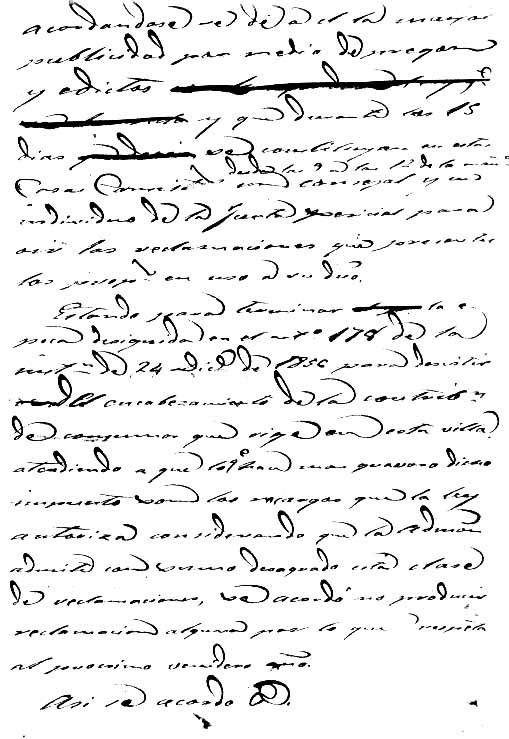 acordandose se dé a el la mayor
publicidad por medio de pregon
y edictos
y que durante los 15
dias se constituyan en estas
desde las 9 a las 12 de la mañ.ª
Casas Consist.s un concejal y un
individuo de la Junta pericial para
oir las reclamaciones que presenten
los en uso de su dro.
Estando para terminar la e-
poca designada en el art.º 178 de la
inst.n de 24 dic.e de 1856 para desistir
del encabezamiento de la contrib.n
de consumos que rige en esta villa,
atendiendo a que lo q.e hace mas gravoso dicho
impuesto son los recargos que la ley
autoriza considerando que la Admon
admite con sumo desagrado esta clase
de reclamaciones, se acordó no producir
reclamacion alguna por lo que respecta
al procsimo venidero año.
Asi se acordo